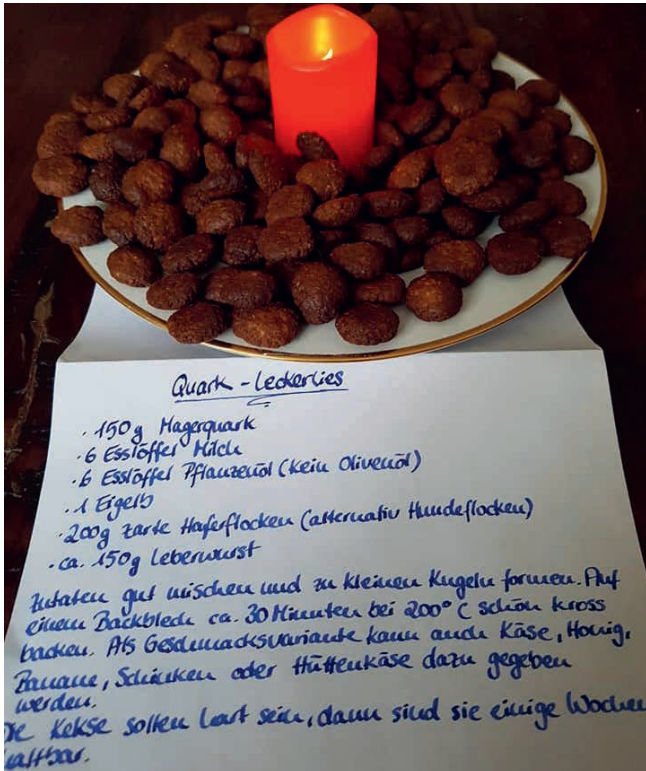 Quark - Leckerlies
· 150g Magerquark
· 6 Esslöffel Milch
· 6 Esslöffel Pflanzenöl (kein Olivenöl)
· 1 Eigelb
· 200g zarte Haferflocken (alternativ Hundeflocken)
· ca. 150g Leberwurst
Zutaten gut mischen und zu kleinen Kugeln formen. Auf
einem Backblech ca. 30 Minuten bei 200° C schön kross
backen. Als Geschmacksvariante kann auch Käse, Honig,
Banane, Schinken oder Hüttenkäse dazu gegeben
werden.
Die Kekse sollen hart sein, dann sind sie einige Wochen
haltbar.